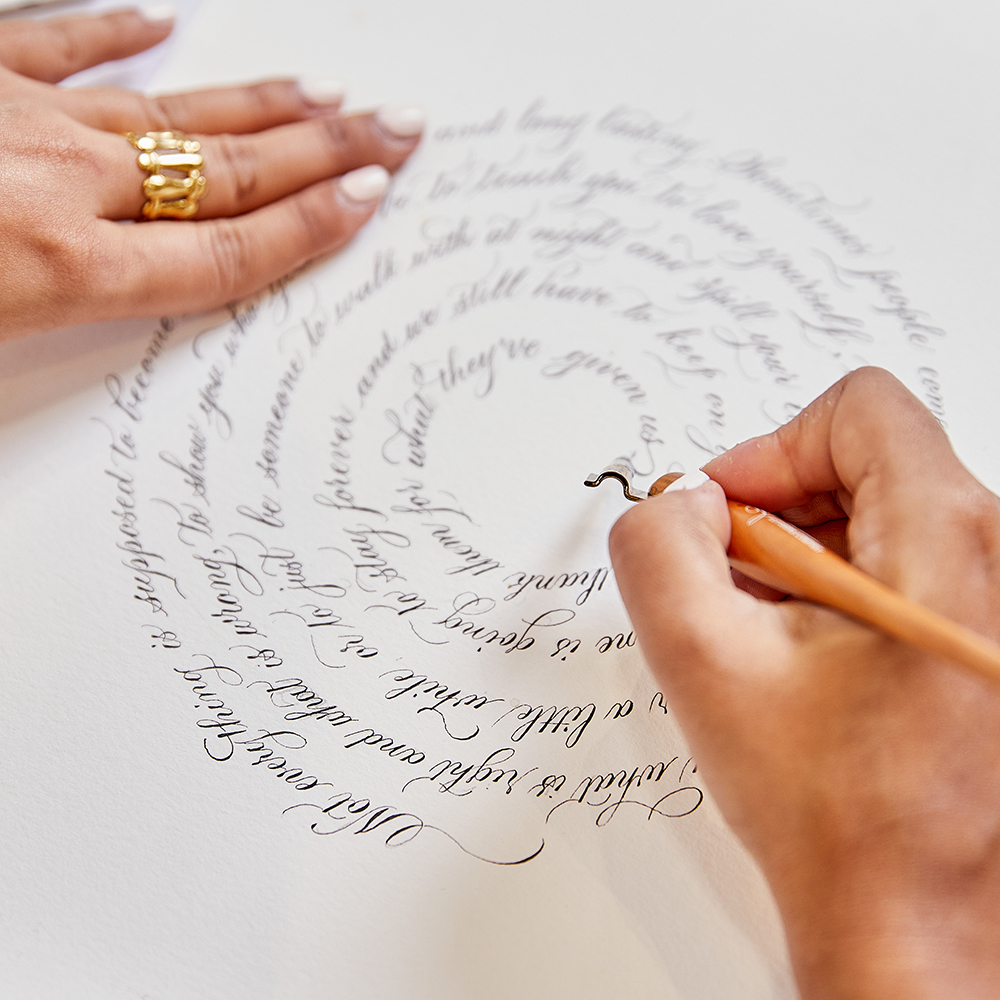 Not everything is supposed to become
and long lasting Sometimes people come
what is right and what is wrong, to show you who you
to teach you to love yourself,
a little while, or to just be someone to walk with at night and spill your
is going to stay forever and we still have to keep on
thank them for what they've given us